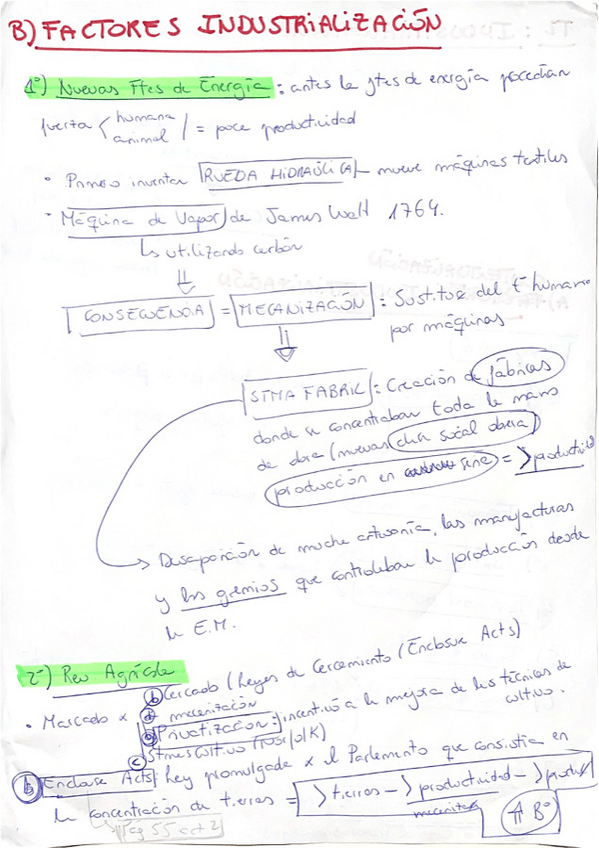 B) FACTORES INDUSTRIALIZACIÓN
1º) Nuevas Ftes de Energía: antes la ftes de energía procedían
fuerza humana
animal = poca productividad
• Primero inventan RUEDA HIDRAÚLICA mueve máquinas textiles
• Máquina de Vapor de James Watt 1764.
↳ utilizando carbón
⇓
CONSECUENCIA = MECANIZACIÓN : Sustituc del t humano
por máquinas
⇓
STMA FABRIL : Creación de fábricas
donde se concentraban toda la mano
de obra (nueva clase social obrera)
producción en serie = > productivid
→ Desaparición de mucha artesanía, las manufacturas
y los gremios que controlaban la producción desde
la E.M.
2º) Rev Agrícola
b Cercado (leyes de Cercamiento (Enclosure Acts)
• Marcado x d mecanización
a Privatización: incentivó a la mejora de las técnicas de
cultivo.
c Stmas cultivo (Norfolk)
b Enclosure Acts: ley promulgada x el Parlamento que consistía en
la concentración de tierras = > tierras - > productividad - > produc
⇑ Bº
Pág 55 act 2